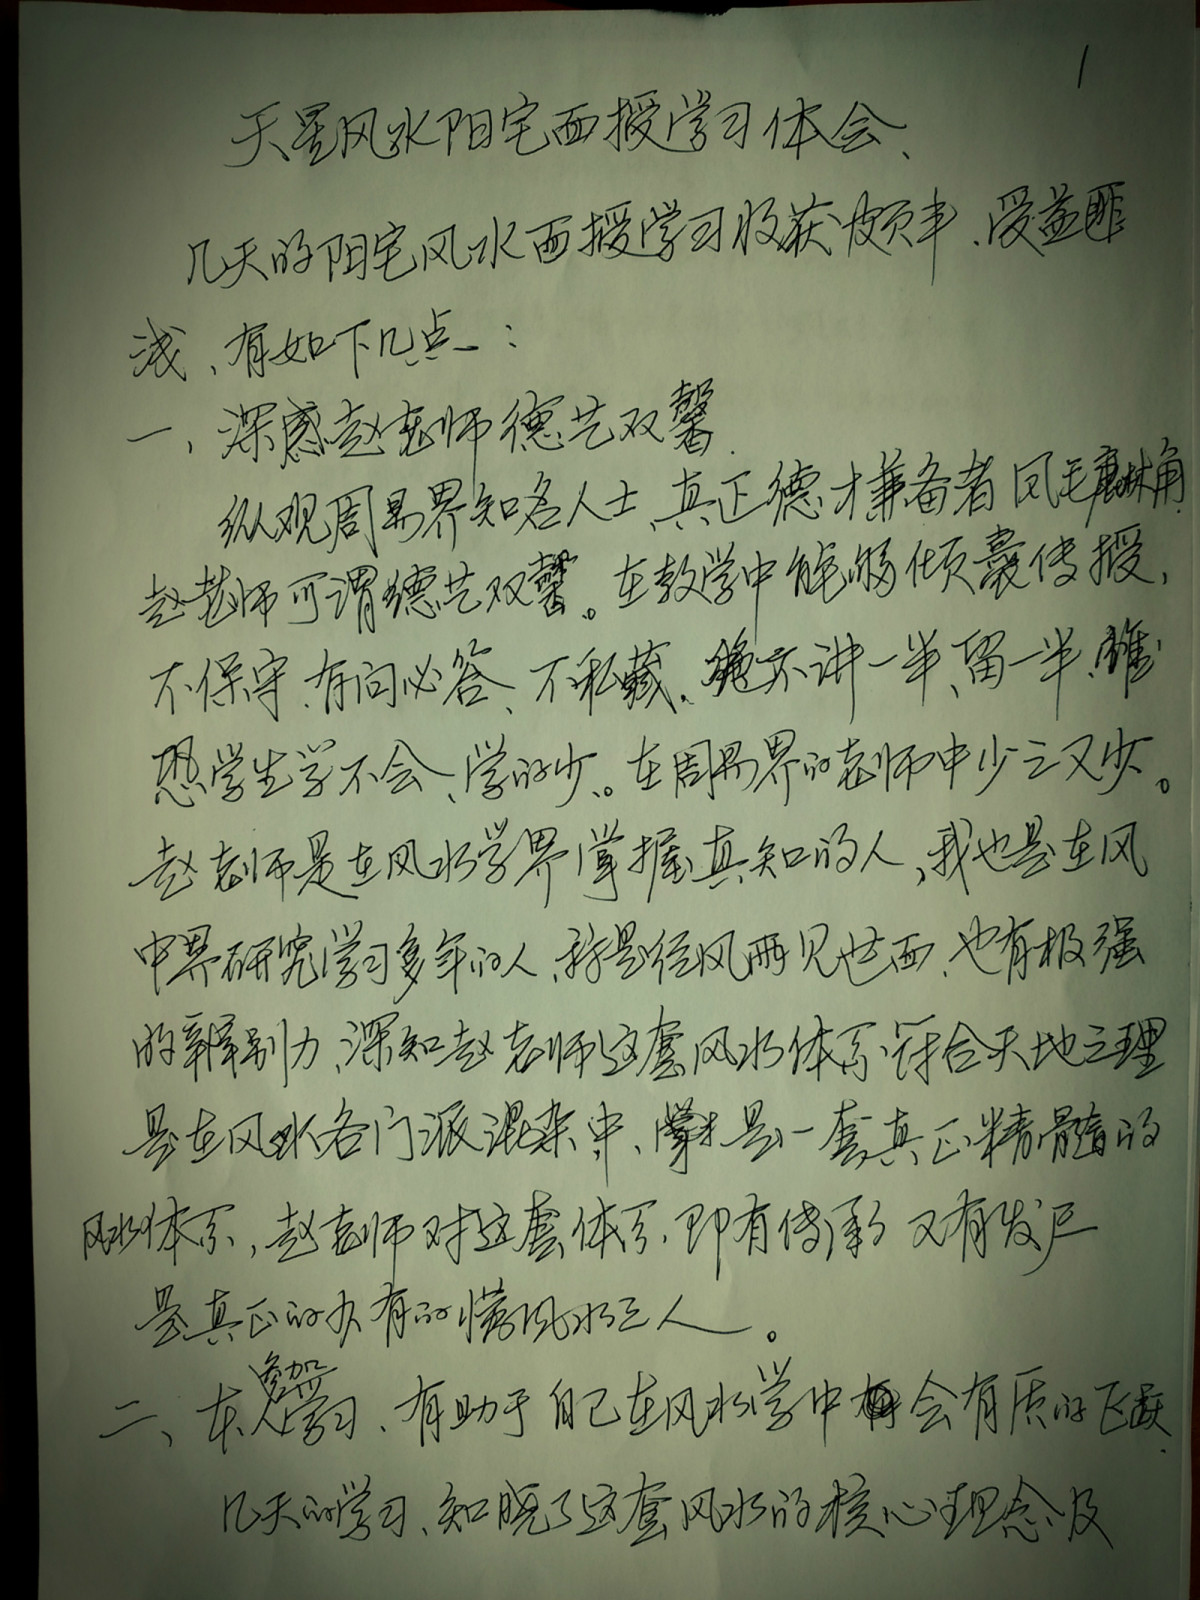 1
天星风水阳宅面授学习体会、
几天的阳宅风水面授学习收获颇丰、受益匪
浅、有如下几点：
一、深感赵老师德艺双馨.
纵观周易界知名人士、真正德才兼备者凤毛麟角.
赵老师可谓德艺双馨。在教学中能够倾囊传授，
不保守、有问必答、不私藏. 绝不讲一半、留一半、唯
恐学生学不会、学的少。在周易界的老师中少之又少。
赵老师是在风水学界掌握真知的人，我也是在风
中界研究学习多年的人、称是经风雨见世面、也有极强
的辩别力、深知赵老师这套风水体系符合天地之理
是在风水各门派混杂中、掌是一套真正精髓的
风水体系，赵老师对这套体系，即有传承 又有发户
是真正的少有的懂风水之人。
二、本人参加学习、有助于自己在风水学中会有质的飞跃.
几天的学习、知晓了这套风水的核心理念及